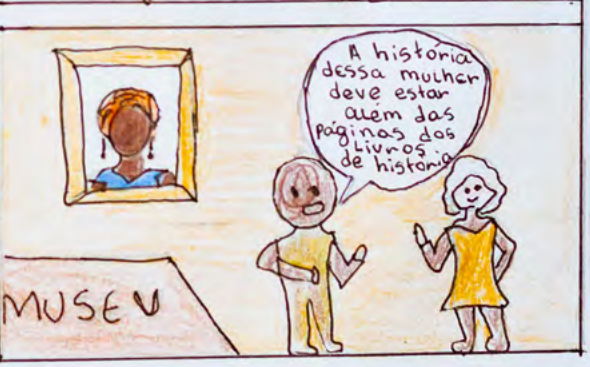 A história
dessa mulher
deve estar
além das
páginas dos
Livros
de história
MUSEU